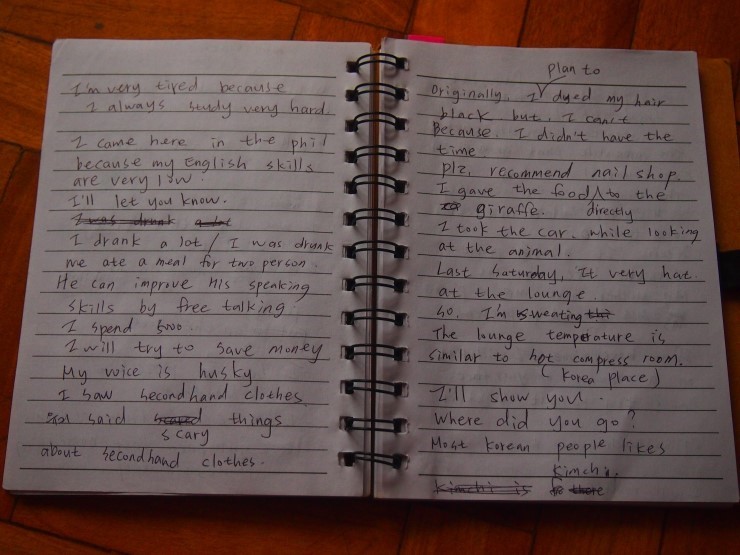 I'm very tired because
I always study very hard
I came here in the phil
because my English skills
are very low.
I'll let you know.
I was drunk a lot
I drank a lot / I was drunk
we ate a meal for two person.
He can improve his speaking
skills by free talking
I spend
I will try to save money
My voice is husky
I saw secondhand clothes
said things
scary
about secondhand clothes.
plan to
Originally, I dyed my hair
black but. I can't
Because. I didn't have the
time
plz, recommend nail shop.
I gave the food to the
giraffe. directly
I took the car. while looking
at the animal.
Last Saturday, It very hot.
at the lounge.
so, I'm sweating
The lounge temperature is
similar to hot compress room.
(Korea place)
I'll show you.
Where did you go?
Most Korean people likes
kimchi.
kimchi is there